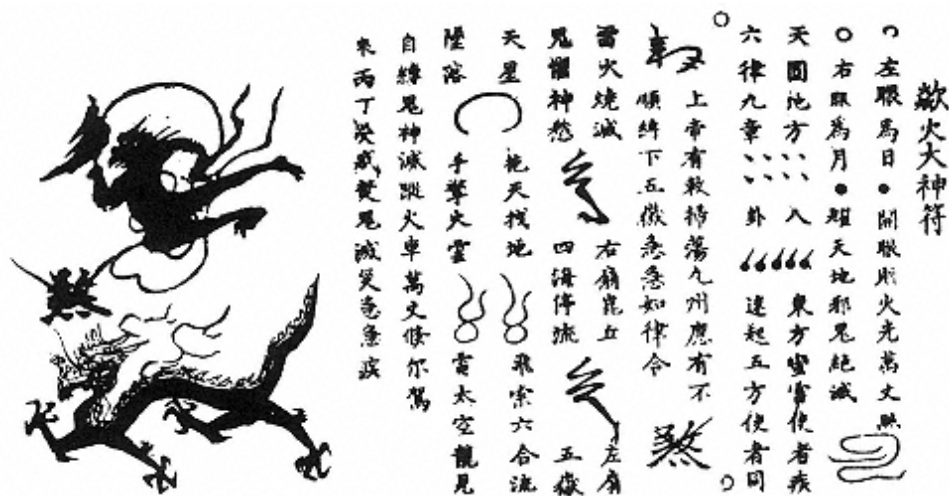 歘火大神符
左眼為日 開眼則火光萬丈照
右眼為月 耀天地邪鬼絕滅
天圓地方 八 東方蠻雷使者疾
六律九章 卦 速起五方使者同
上帝有敕掃蕩九州應有不
順絳下五嶽急急如律令 煞
雷火燒滅 右扇崑丘 左扇
鬼懼神愁 四海停流 五嶽
天星 拖天找地 飛索六合流
墜落 手擎火雷 雷太空龍見
自縛鬼神滅蹤火車萬丈倏尔駕
來丙丁癸威焚鬼滅災急急疾